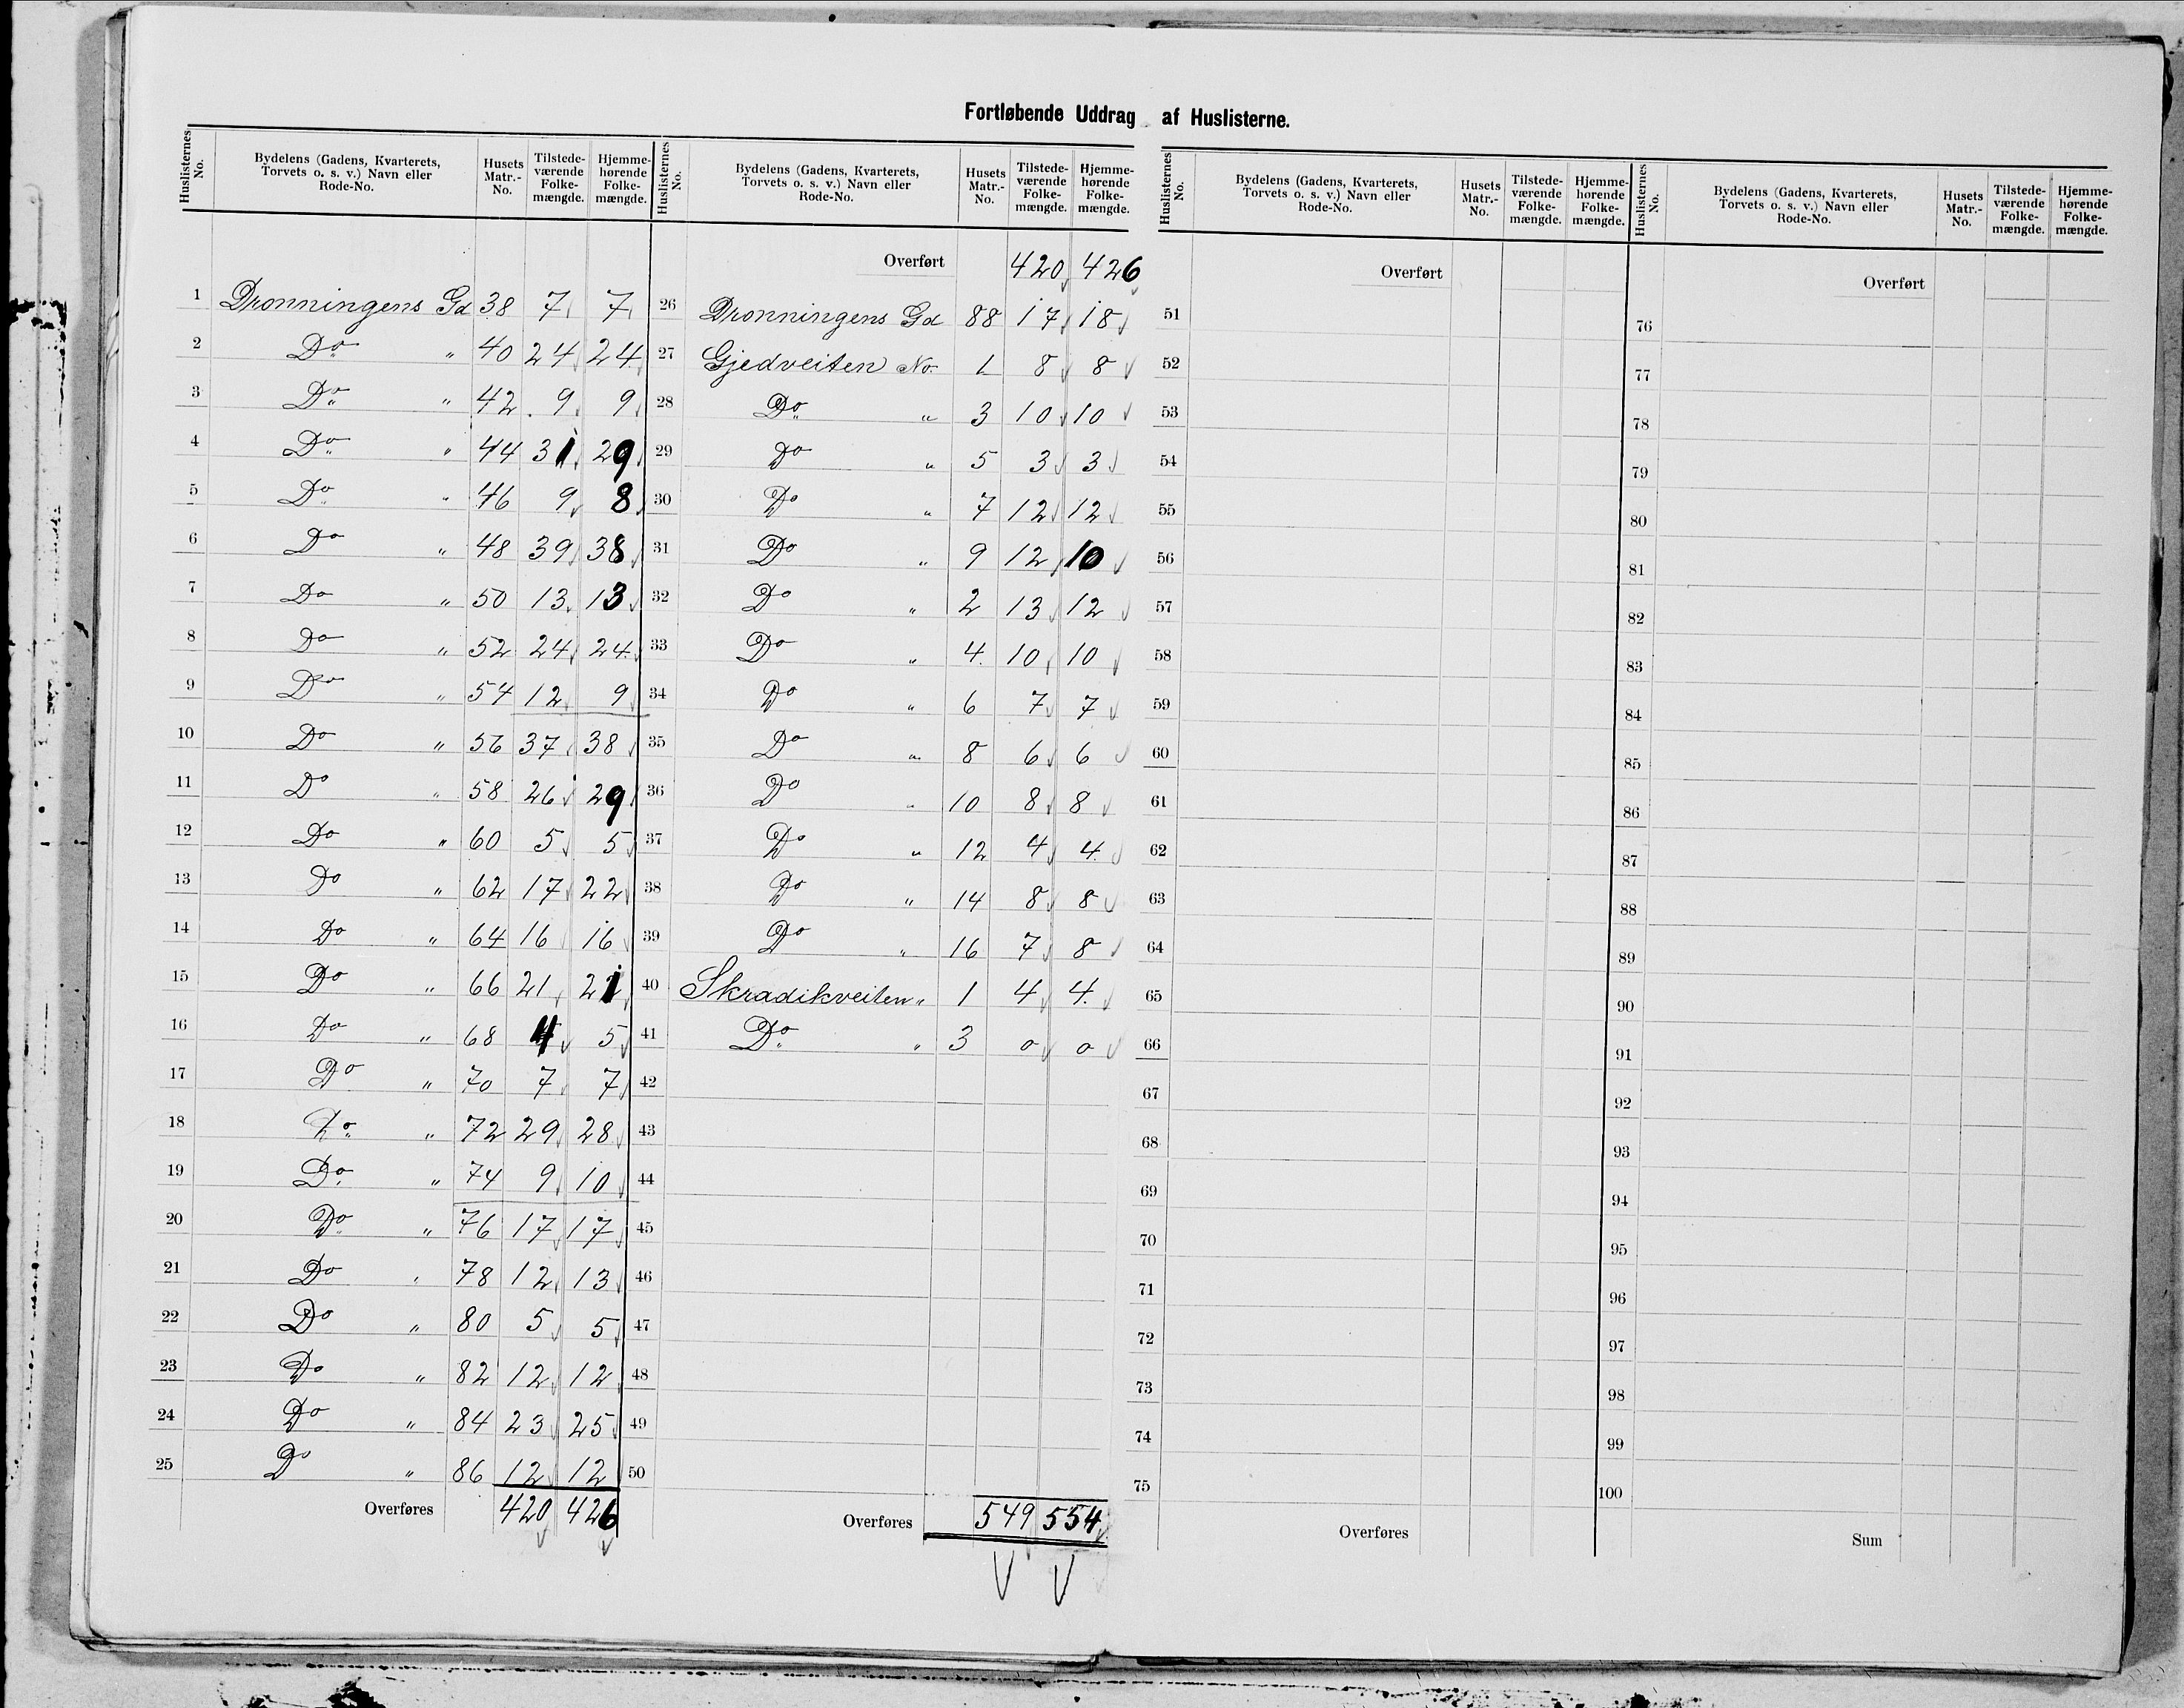 Fortløbende Uddrag af Huslisterne.
Huslisternes No. | Bydelens (Gadens, Kvarterets, Torvets o. s. v.) Navn eller Rode-No. | Husets Matr.-No. | Tilstedeværende Folkemængde. | Hjemmehørende Folkemængde.
1 Dronningens Gd 38 7 7
2 Do " 40 24 24
3 Do " 42 9 9
4 Do " 44 31 29
5 Do " 46 9 8
6 Do " 48 39 38
7 Do " 50 13 13
8 Do " 52 24 24
9 Do " 54 12 9
10 Do " 56 37 38
11 Do " 58 26 29
12 Do " 60 5 5
13 Do " 62 17 22
14 Do " 64 16 16
15 Do " 66 21 21
16 Do " 68 4 5
17 Do " 70 7 7
18 Do " 72 29 28
19 Do " 74 9 10
20 Do " 76 17 17
21 Do " 78 12 13
22 Do " 80 5 5
23 Do " 82 12 12
24 Do " 84 23 25
25 Do " 86 12 12
Overføres 420 426
Huslisternes No. | Bydelens (Gadens, Kvarterets, Torvets o. s. v.) Navn eller Rode-No. | Husets Matr.-No. | Tilstedeværende Folkemængde. | Hjemmehørende Folkemængde.
Overført 420 426
26 Dronningens Gd 88 17 18
27 Gjedveiten No. 1 8 8
28 Do " 3 10 10
29 Do " 5 3 3
30 Do " 7 12 12
31 Do " 9 12 10
32 Do " 2 13 12
33 Do " 4 10 10
34 Do " 6 7 7
35 Do " 8 6 6
36 Do " 10 8 8
37 Do " 12 4 4
38 Do " 14 8 8
39 Do " 16 7 8
40 Skradikveiten " 1 4 4
41 Do " 3 0 0
42
43
44
45
46
47
48
49
50
Overføres 549 554
Huslisternes No. | Bydelens (Gadens, Kvarterets, Torvets o. s. v.) Navn eller Rode-No. | Husets Matr.-No. | Tilstedeværende Folkemængde. | Hjemmehørende Folkemængde.
Overført
51
52
53
54
55
56
57
58
59
60
61
62
63
64
65
66
67
68
69
70
71
72
73
74
75
Overføres
Huslisternes No. | Bydelens (Gadens, Kvarterets, Torvets o. s. v.) Navn eller Rode-No. | Husets Matr.-No. | Tilstedeværende Folkemængde. | Hjemmehørende Folkemængde.
Overført
76
77
78
79
80
81
82
83
84
85
86
87
88
89
90
91
92
93
94
95
96
97
98
99
100
Sum